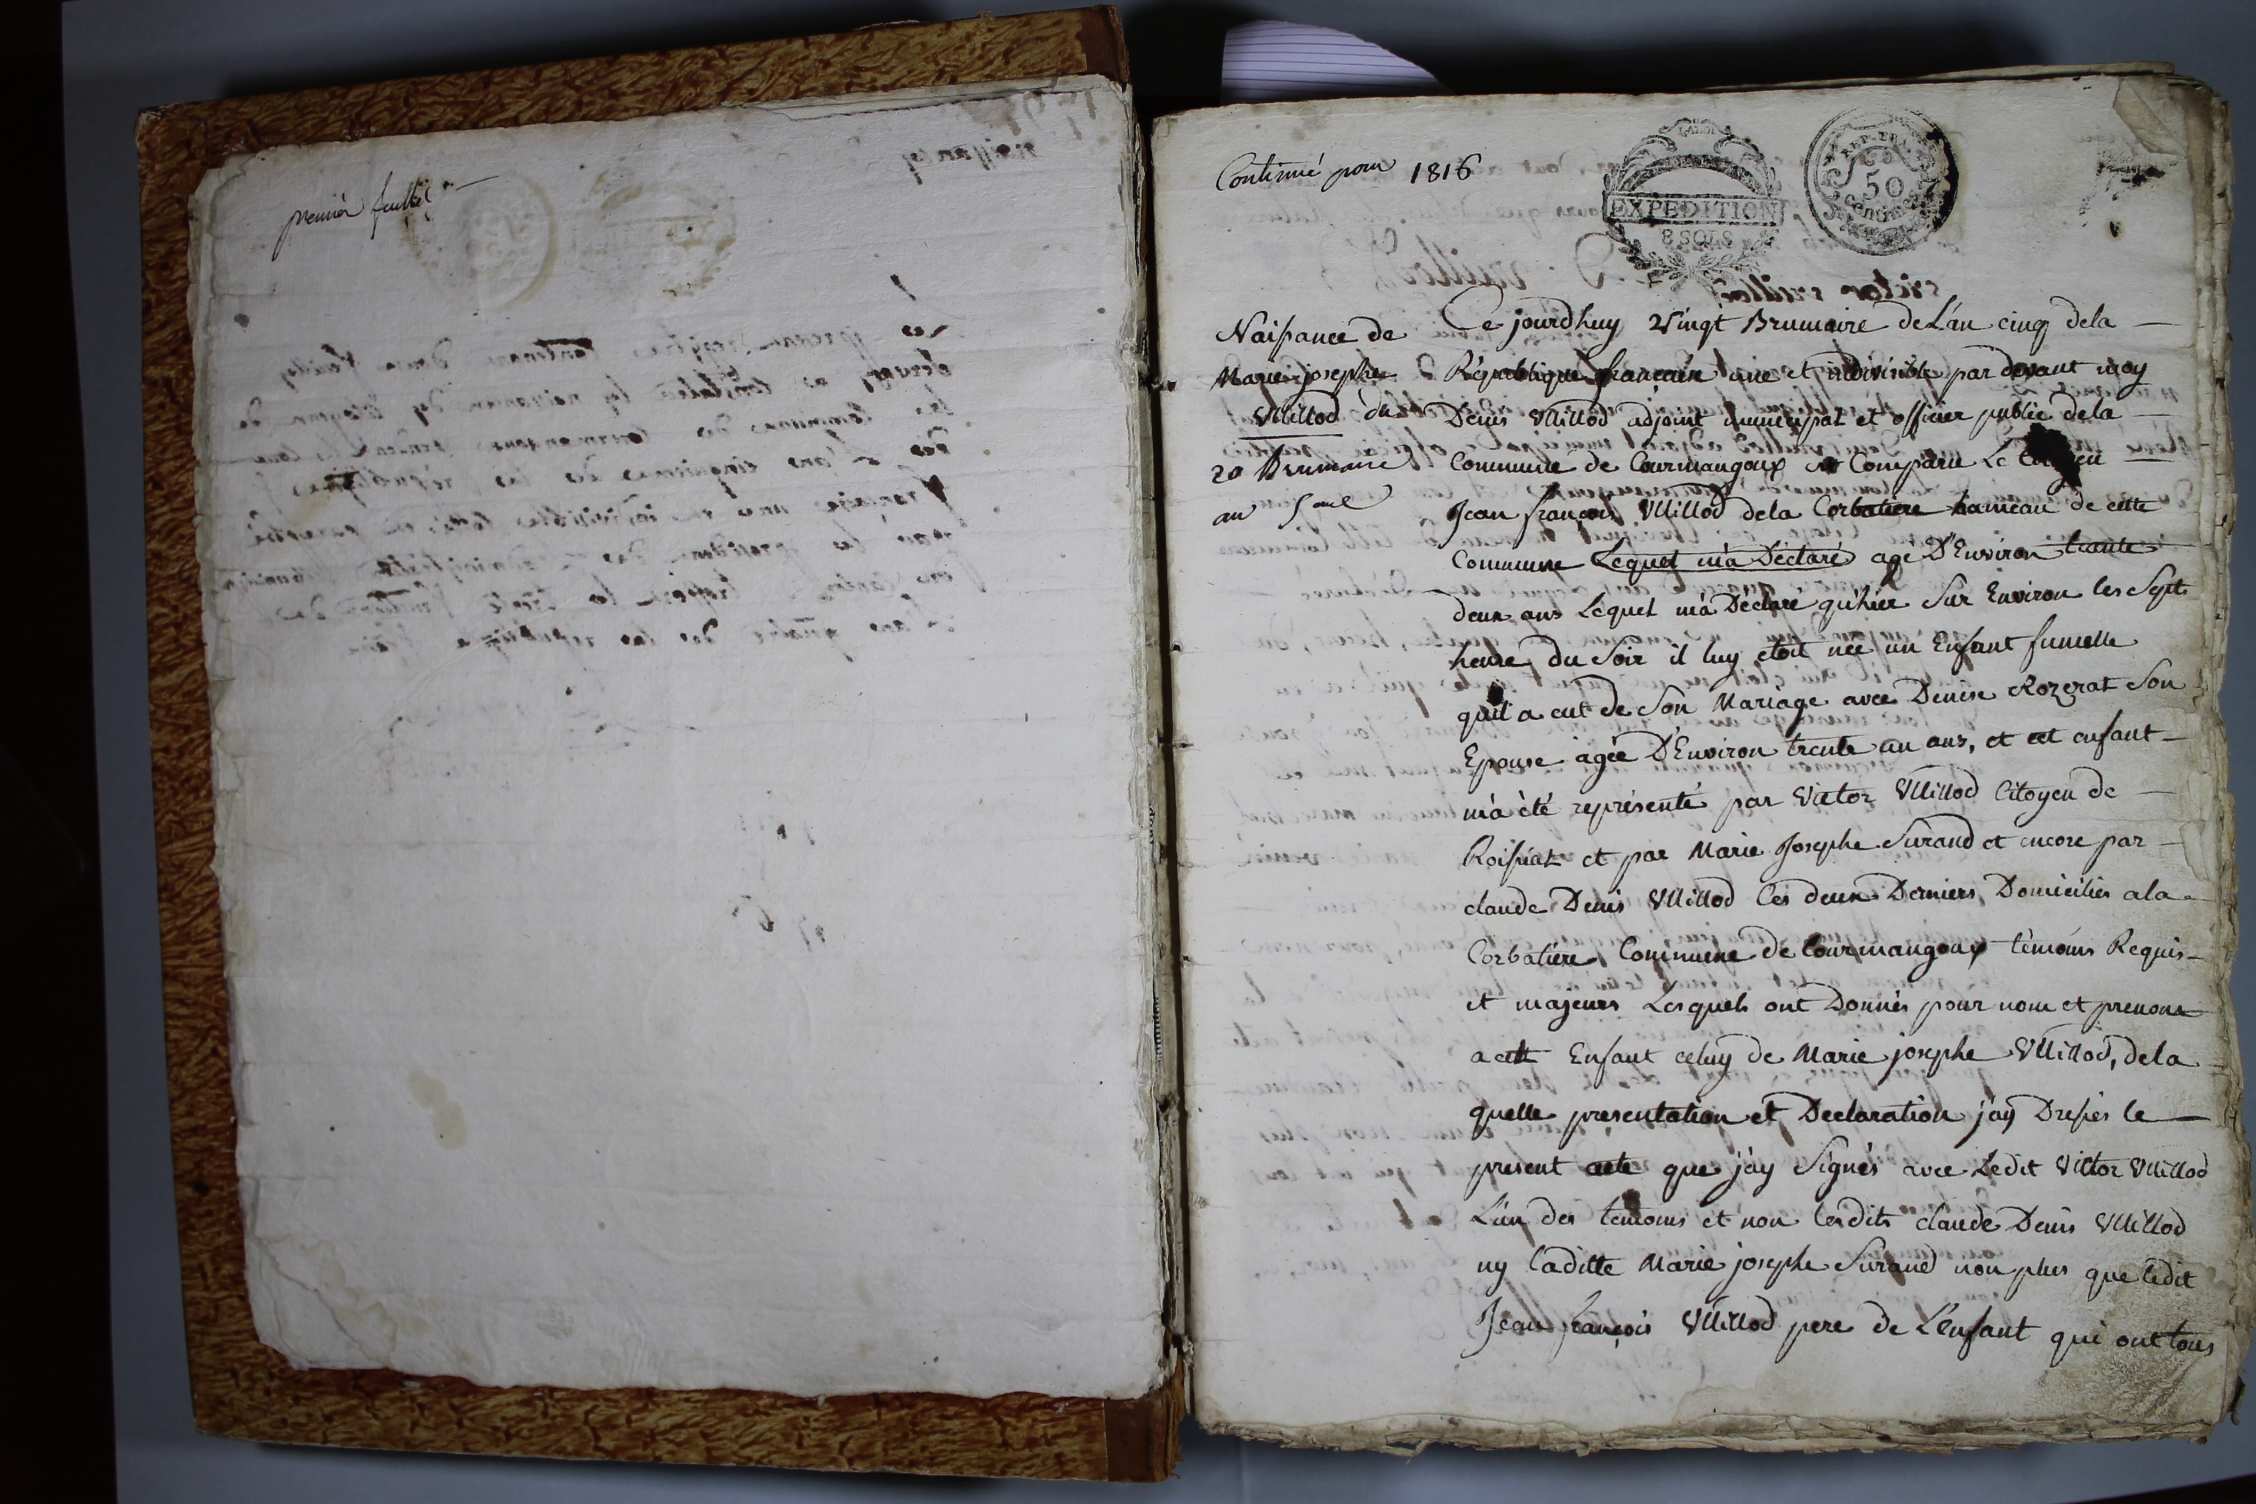 premier feuillet
Continué pour 1816
EXPEDITION
8 SOLS
REP. FRA.
50
centimes
Naissance de
Marie josephe
Vuillod du
20 Brumaire
an 5me
Ce jourdhuy Vingt Brumaire de L'an cinq dela
République francaise une et indivisible par devant moy
Denis Vuillod adjoint municipal et officier public dela
Commune de Courmangoux est Comparu Le Citoyen
Jean françois Vuillod dela Corbatiere hameau de cette
Commune Lequel m'a Déclaré agé D'Environ trente
deux ans Lequel m'a Déclaré qu'hier Sur Environ les Sept
heure du Soir il luy etoit née un Enfant fumelle
quil a eut de Son Mariage avec Denise Rozerat Son
Epouse agée D'Environ trente un ans, et cet enfant
m'a été représenté par Victor Vuillod Citoyen de
Roissiat et par Marie Josephe Surand et encore par
claude Denis Vuillod Ces deux Derniers Domiciliés a la
Corbatière Commune de Courmangoux témoins Requis
et majeurs Lesquels ont Donnés pour nom et prenom
a cett Enfant celuy de Marie josephe Vuillod, dela
quelle presentation et Declaration j'ay Dressés le
present acte que j'ay Signés avec Ledit Victor Vuillod
L'un des temoins et non lesdits claude Denis Vuillod
ny laditte Marie josephe Surand non plus que ledit
Jean françois Vuillod pere de L'enfant qui ont tous